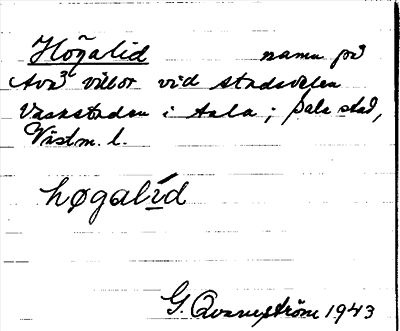 Högalid namn på
två villor vid stadsdelen
Vasastaden i Sala; Sala stad,
Västm. l.
høgalid
G. Qvarnström 1943